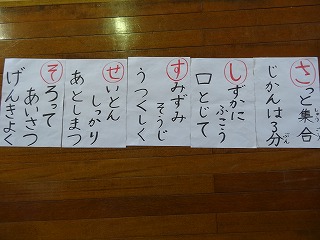 さっと集合
じかんは3分
しずかに
ぶこう
口とじて
すみずみ
そうじ
うつくしく
せいとん
しっかり
あとしまつ
そろって
あいさつ
げんきよく